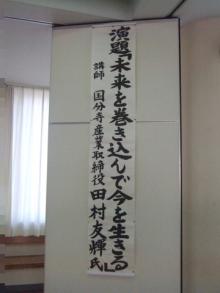 演題「未来を巻き込んで今を生きる」
講師 国分寺産業取締役 田村友輝氏